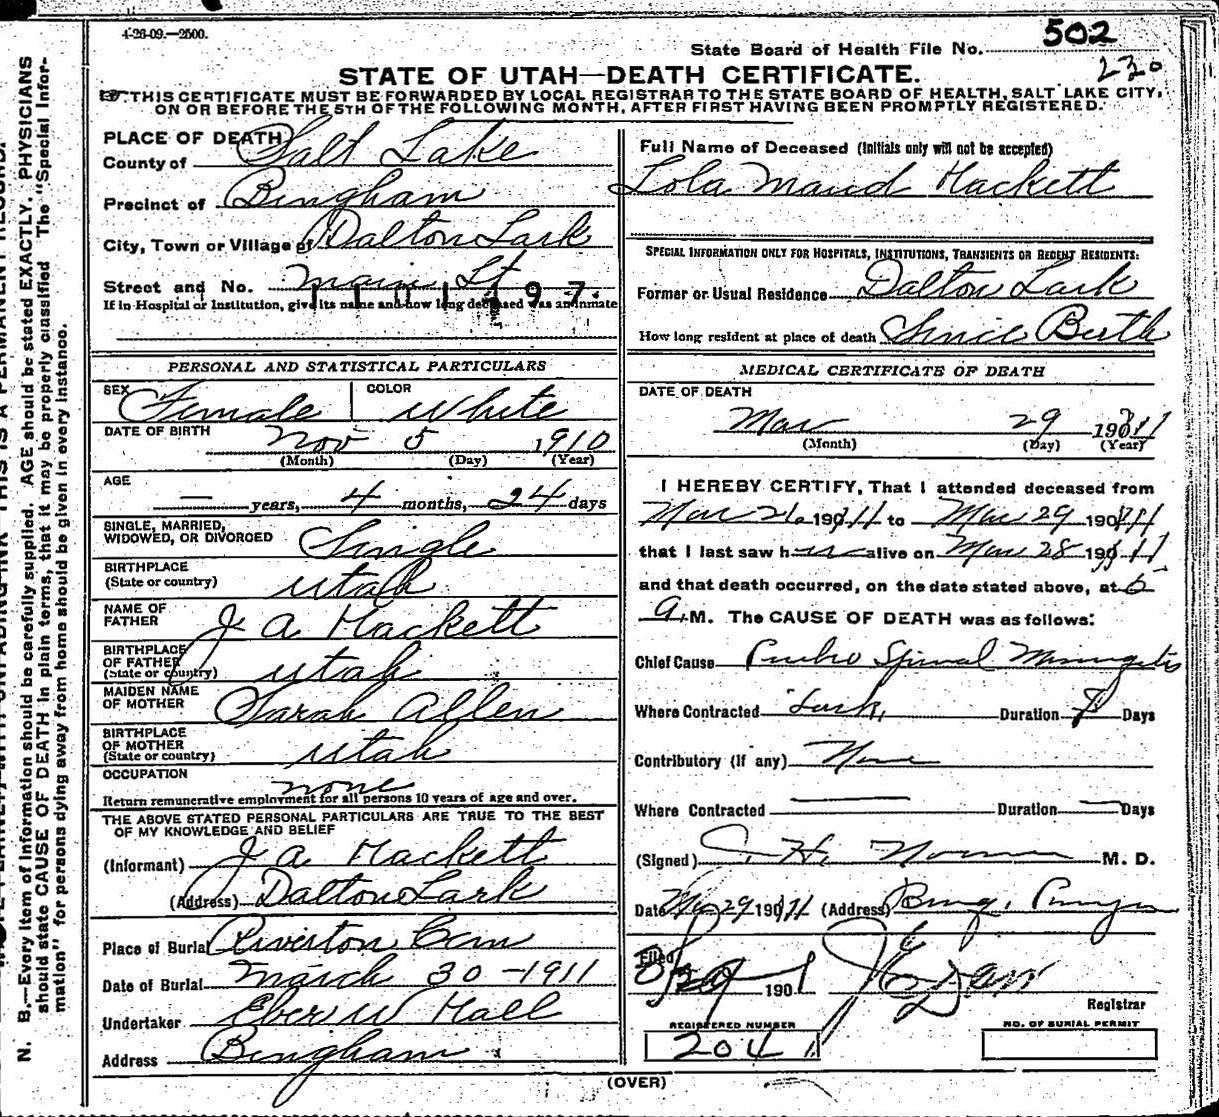 4-26-09.—2500.
State Board of Health File No. 502
230
STATE OF UTAH—DEATH CERTIFICATE.
THIS CERTIFICATE MUST BE FORWARDED BY LOCAL REGISTRAR TO THE STATE BOARD OF HEALTH, SALT LAKE CITY,
ON OR BEFORE THE 5TH OF THE FOLLOWING MONTH, AFTER FIRST HAVING BEEN PROMPTLY REGISTERED.
PLACE OF DEATH
County of Salt Lake
Precinct of Bingham
City, Town or Village of Dalton Lark
Street and No. Main St
If in Hospital or Institution, give its name and how long deceased was an inmate
Full Name of Deceased (Initials only will not be accepted)
Lola Maud Hackett
SPECIAL INFORMATION ONLY FOR HOSPITALS, INSTITUTIONS, TRANSIENTS OR RECENT RESIDENTS:
Former or Usual Residence Dalton Lark
How long resident at place of death Since Birth
PERSONAL AND STATISTICAL PARTICULARS
SEX Female COLOR White
DATE OF BIRTH Nov 5 1910
(Month) (Day) (Year)
AGE
— years, 4 months, 24 days
SINGLE, MARRIED,
WIDOWED, OR DIVORCED Single
BIRTHPLACE
(State or country) Utah
NAME OF
FATHER J A Hackett
BIRTHPLACE
OF FATHER
(State or country) Utah
MAIDEN NAME
OF MOTHER Sarah Allen
BIRTHPLACE
OF MOTHER
(State or country) Utah
OCCUPATION
none
Return remunerative employment for all persons 10 years of age and over.
THE ABOVE STATED PERSONAL PARTICULARS ARE TRUE TO THE BEST
OF MY KNOWLEDGE AND BELIEF
(Informant) J A Hackett
(Address) Dalton Lark
Place of Burial Riverton Cem
Date of Burial March 30-1911
Undertaker Eber W Hall
Address Bingham
MEDICAL CERTIFICATE OF DEATH
DATE OF DEATH
Mar 29 1911
(Month) (Day) (Year)
I HEREBY CERTIFY, That I attended deceased from
Mar 21 1911 to Mar 29 1911
that I last saw her alive on Mar 28 1911
and that death occurred, on the date stated above, at 6
A.M. The CAUSE OF DEATH was as follows:
Chief Cause Spinal Meningitis
Where Contracted Lark, Duration 8 Days
Contributory (if any) None
Where Contracted — Duration — Days
(Signed) M. D.
Date Mar 29 1911 (Address) Bing.
Filed
3/29 1901
Registrar
REGISTERED NUMBER
204
NO. OF BURIAL PERMIT
(OVER)
N. B.—Every item of information should be carefully supplied. AGE should be stated EXACTLY. PHYSICIANS
should state CAUSE OF DEATH in plain terms, that it may be properly classified The "Special Infor-
mation" for persons dying away from home should be given in every instance.